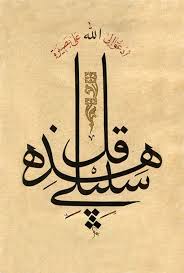 أدعوا إلى الله على بصيرة
قل هذه سبيلي